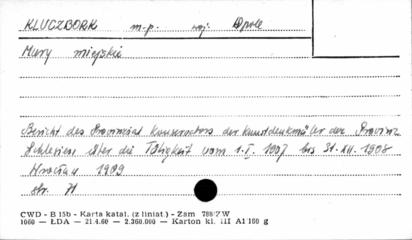 KLUCZBORK m-p. woj. Opole
Mury miejskie
Bericht des Provinzial Konservators der Kunstdenkmäler der Provinz
Schlesien über die Tätigkeit vom 1.I. 1907 bis 31.XII. 1908
Wrocław 1909
str. 71
CWD - B 15b - Karta katal. (z liniat.) - Zam 788/ZW
1060 — ŁDA — 21.4.60 — 2.360.000 — Karton kl. III A1 160 g